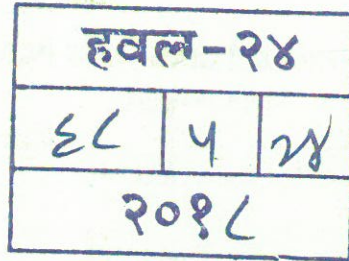 हवल-२४
६८ ५ २४
२०१८